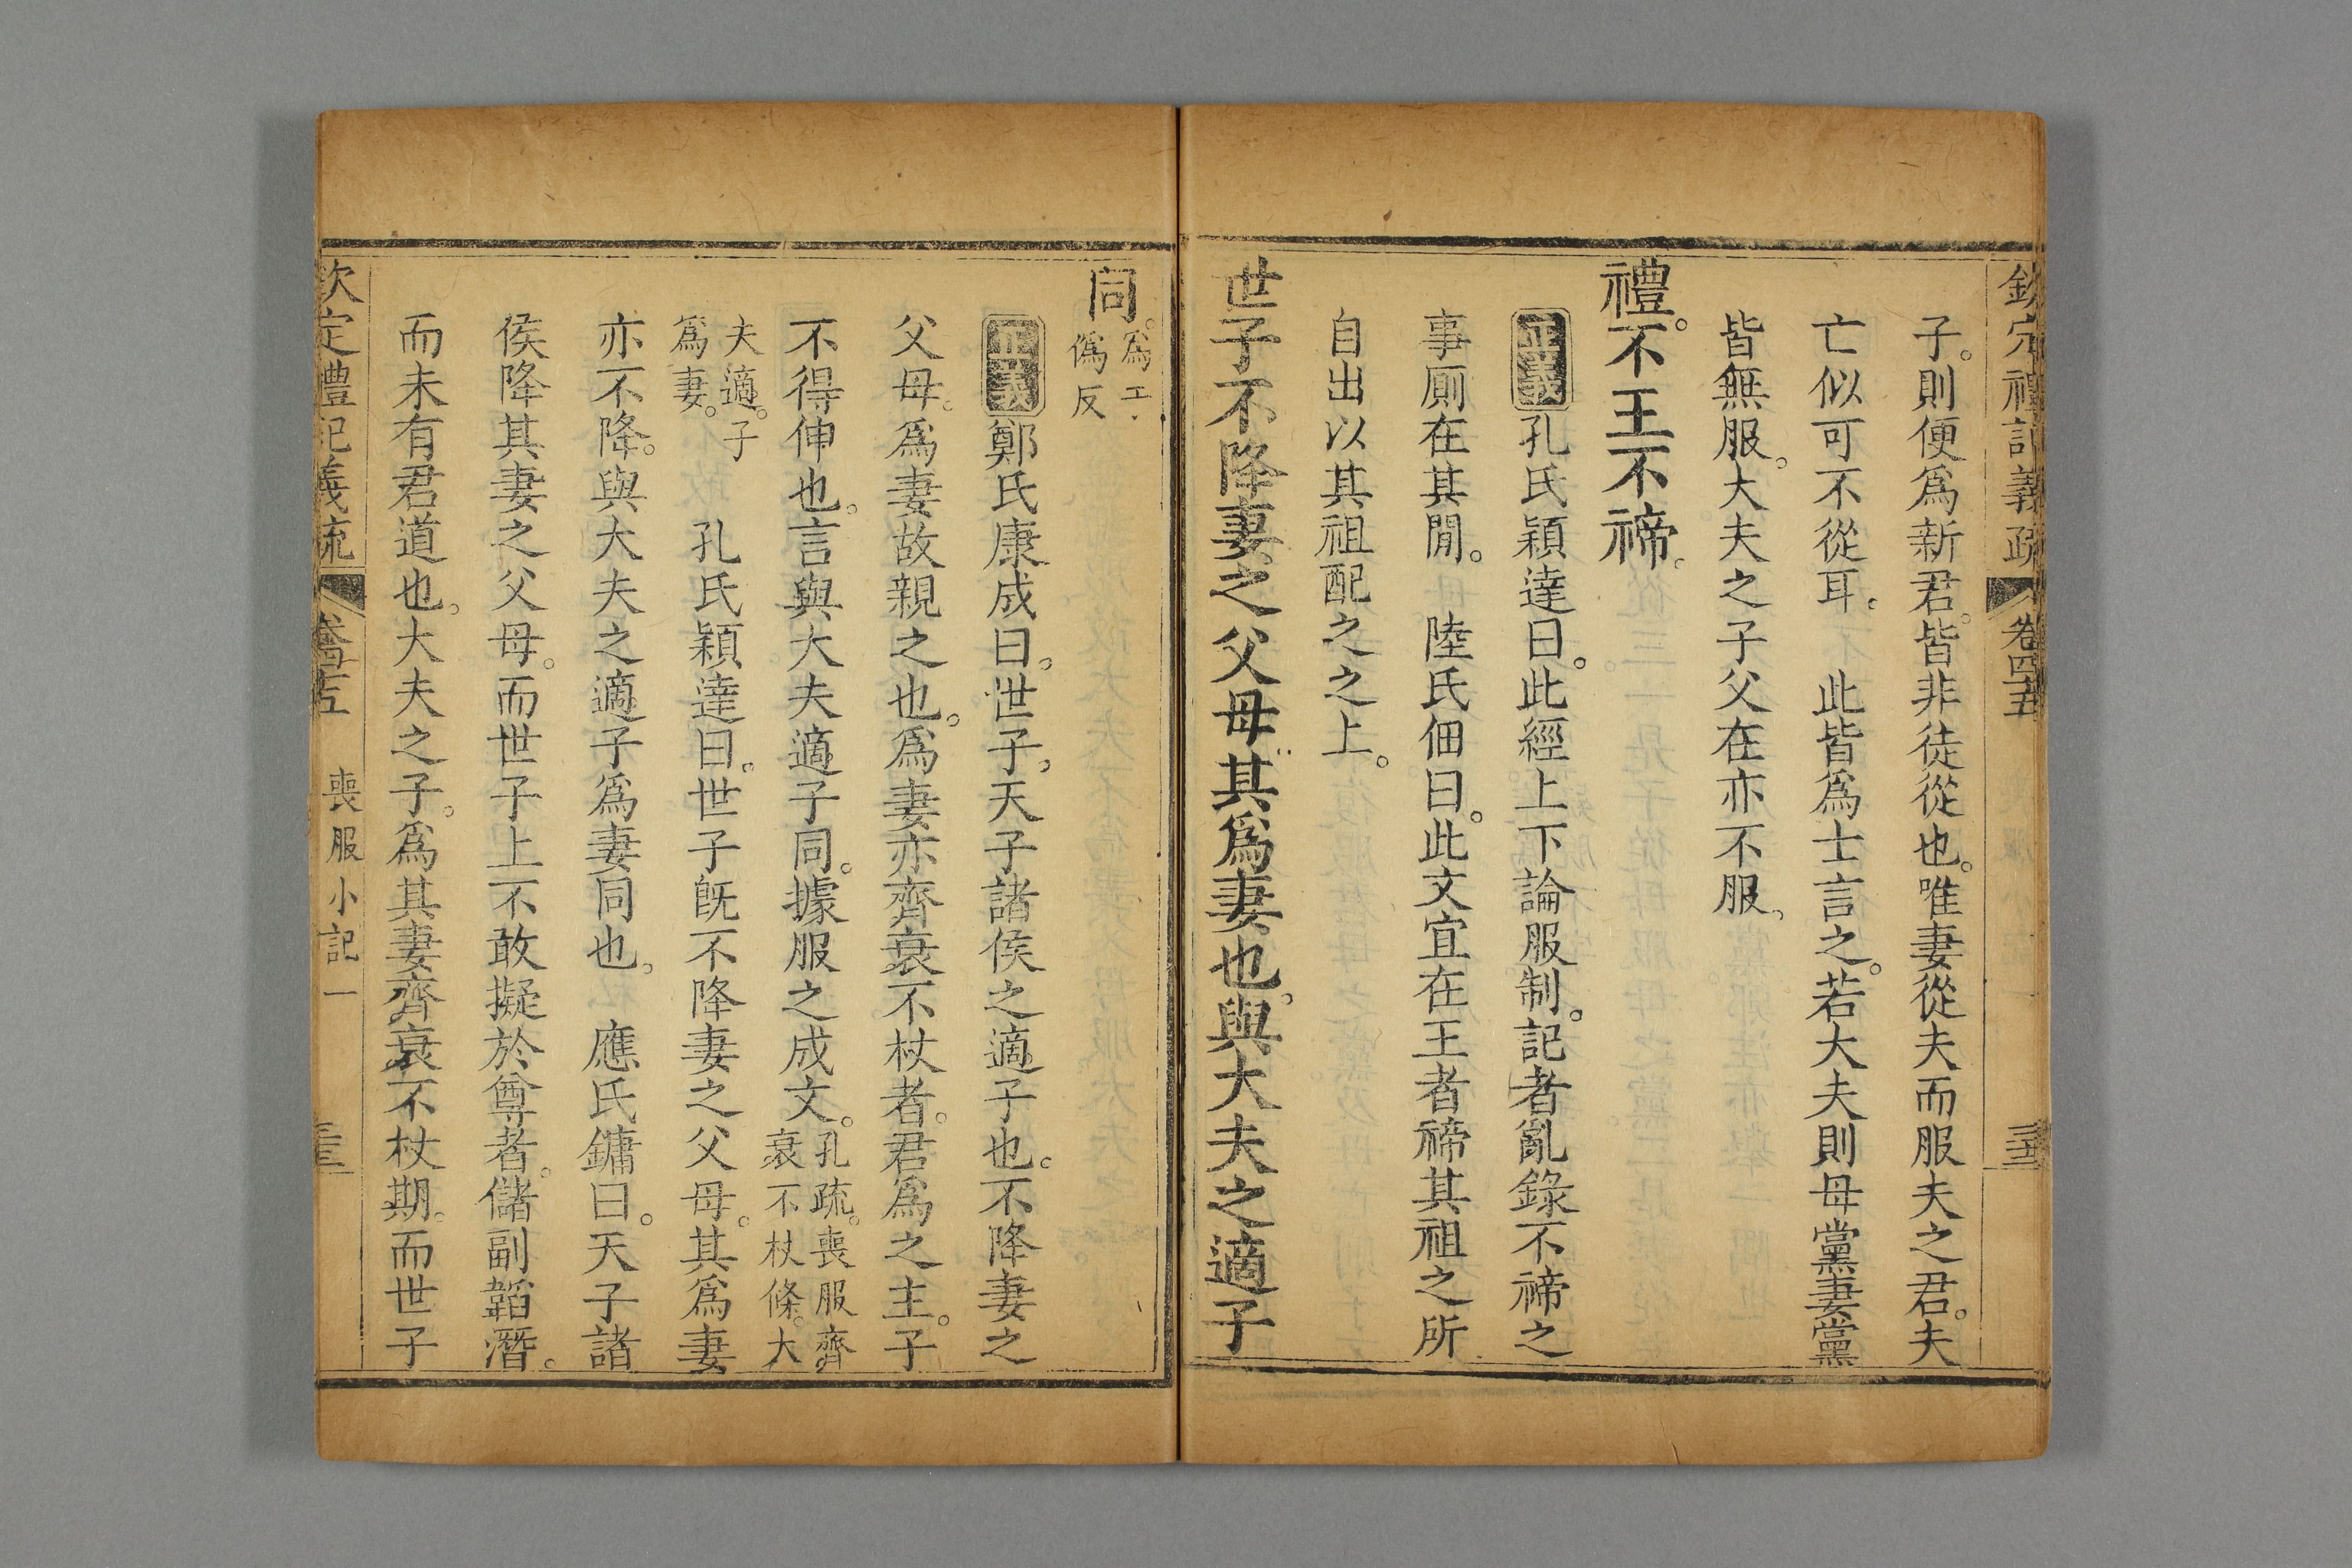 欽定禮記義疏 卷四五
子。則便爲新君。皆非徒從也。唯妻從夫而服夫之君。夫
亡似可不從耳。 此皆爲士言之。若大夫則母黨妻黨
皆無服。大夫之子父在亦不服。
禮。不王不禘。
正義孔氏穎達曰。此經上下論服制。記者亂錄不禘之
事厠在其閒。 陸氏佃曰。此文宜在王者禘其祖之所
自出以其祖配之之上。
世子不降妻之父母。其爲妻也。與大夫之適子
同。爲工
僞反
正義鄭氏康成曰。世子。天子諸侯之適子也。不降妻之
父母。爲妻故親之也。爲妻亦齊衰不杖者。君爲之主。子
不得伸也。言與大夫適子同。據服之成文。孔疏。喪服齊
衰不杖條。大
夫適。子
爲妻。 孔氏穎達曰。世子旣不降妻之父母。其爲妻
亦不降。與大夫之適子爲妻同也。 應氏鏞曰。天子諸
侯降其妻之父母。而世子上不敢擬於尊者。儲副韜潛。
而未有君道也。大夫之子。爲其妻齊衰不杖期。而世子
欽定禮記義疏 卷四五 喪服小記一